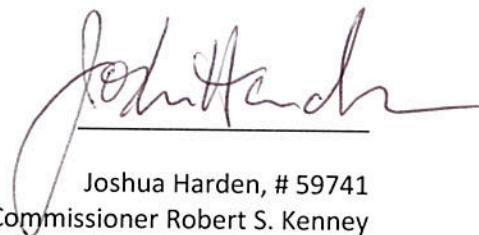 Josh Harden
Joshua Harden, # 59741
Commissioner Robert S. Kenney